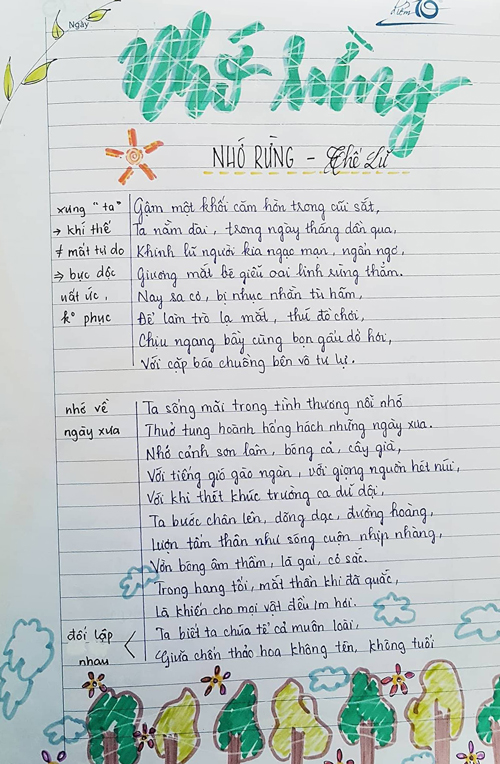 Ngày
điểm 10
Nhớ rừng
NHỚ RỪNG - Thế Lữ
xưng "ta"
→ khí thế
≠ mất tự do
⇒ bực dọc
uất ức,
k° phục
Gậm một khối căm hờn trong cũi sắt,
Ta nằm dài, trong ngày tháng dần qua,
Khinh lũ người kia ngạo mạn, ngẩn ngơ,
Giương mắt bé giễu oai linh rừng thẳm.
Nay sa cơ, bị nhục nhằn tù hãm,
Để làm trò lạ mắt, thứ đồ chơi,
Chịu ngang bầy cùng bọn gấu dở hơi,
Với cặp báo chuồng bên vô tư lự.
nhớ về
ngày xưa
Ta sống mãi trong tình thương nỗi nhớ
Thuở tung hoành hống hách những ngày xưa.
Nhớ cảnh sơn lâm, bóng cả, cây già,
Với tiếng gió gào ngàn, với giọng nguồn hét núi,
Với khi thét khúc trường ca dữ dội,
Ta bước chân lên, dõng dạc, đường hoàng,
Lượn tấm thân như sóng cuộn nhịp nhàng,
Vờn bóng âm thầm, lá gai, cỏ sắc.
Trong hang tối, mắt thần khi đã quắc,
Là khiến cho mọi vật đều im hơi.
đối lập
nhau
Ta biết ta chúa tể cả muôn loài,
Giữa chốn thảo hoa không tên, không tuổi